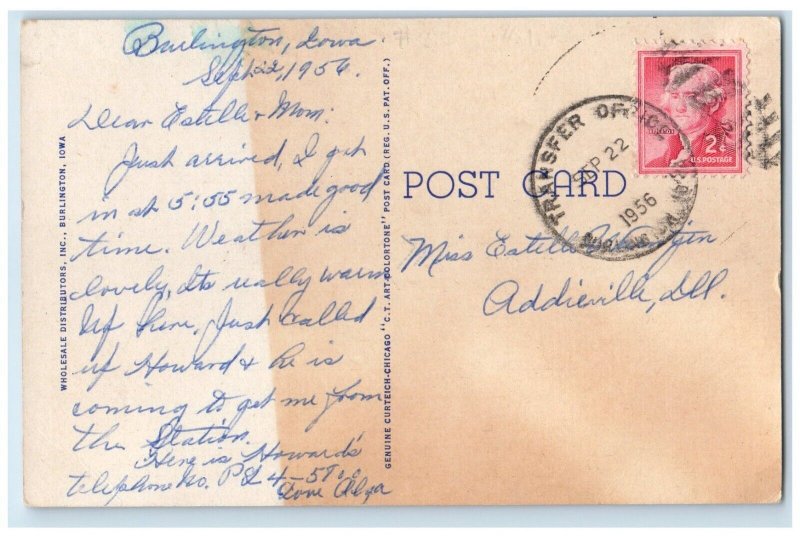 Burlington, Iowa
Sept 22, 1956.
Dear Estelle & Mom:
Just arrived, I got
in at 5:55 made good
time. Weather is
lovely, Its really warm
up here. Just called
up Howard & he is
coming to get me from
the Station.
Here is Howard's
telephone no. PL 4-
Love
WHOLESALE DISTRIBUTORS, INC., BURLINGTON, IOWA
GENUINE CURTEICH-CHICAGO "C.T. ART-COLORTONE" POST CARD (REG. U.S. PAT. OFF.)
POST CARD
TRANSFER OFFICE
SEP 22
1956
2¢
U.S. POSTAGE
Miss Estelle
Addieville, Ill.